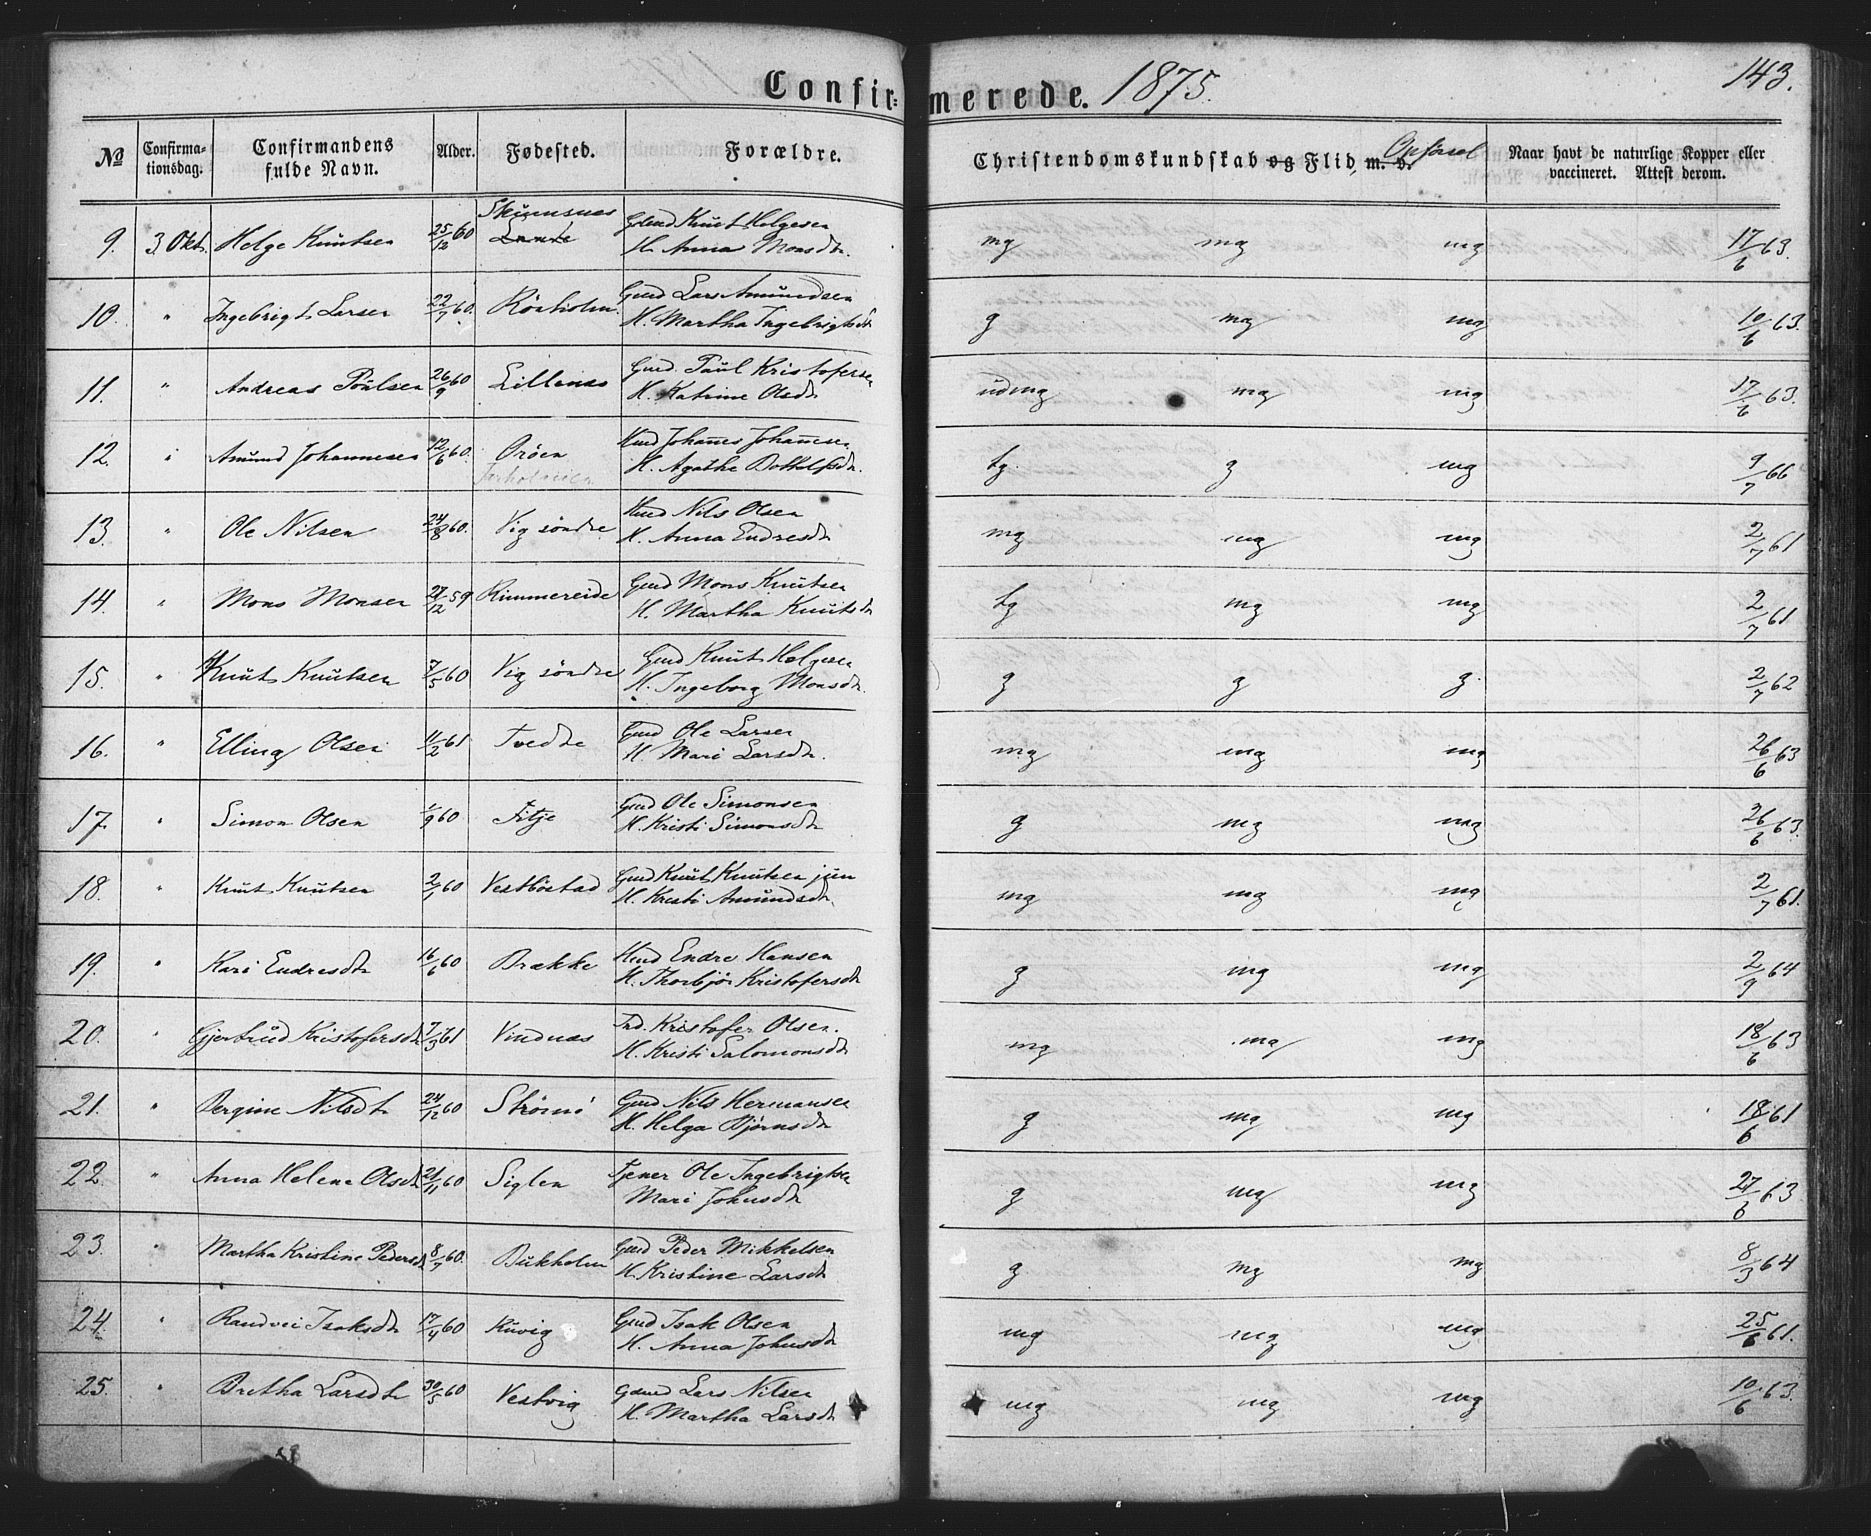 Confirmerede. 1875. 143.
No Confirmationsdag. Confirmandens fulde Navn. Alder. Fødested. Forældre. Christendomskundskab og Flid, m. v. Opførsel Naar havt de naturlige Kopper eller vaccineret. Attest derom.
9. 3 Okt. Helge Knutsen 25/12 60 Skumsnæs Gmd Knut Helgesen mg mg mg 17/6 63.
H. Anna Monsdtr.
10. " Ingebrigt Larsen 22/7 60. Røxholm Gmd Lars Amundsen g mg mg 10/6 63.
H. Martha Ingebrigtsdtr
11. " Andreas Poulsen 26/9 60 Lillenæs Gmd. Paul Kristofersen udmg mg mg 17/6 63.
H. Katrine Olsdtr
12. " Amund Johannesen 12/6 60. Orøen Hmd Johannes Johannesen tg. g mg 9/7 66
H. Agathe Bottolfsdtr.
13. " Ole Nilsen 24/8 60. Vig søndre Hmd Nils Olsen mg mg mg 2/7 61
H. Anna Endresdtr
14. " Mons Monsen 27/12 59 Rimmereide Gmd Mons Knutsen tg mg mg 2/7 61
H. Martha Knutsdtr
15. " Knut Knutsen 7/5 60 Vig søndre Gmd Knut Helgesen g g g. 2/7 62
H. Ingeborg Monsdtr.
16. " Elling Olsen 11/2 61 Tvedte Gmd Ole Larsen mg mg mg 26/6 63
H. Mari Larsdtr.
17. " Simon Olsen 1/9 60 Fitje Gmd Ole Simonsen g mg mg 26/6 63.
H. Kristi Simonsdtr
18. " Knut Knutsen 2/1 60 Vestbøstad Gmd Knut Knutsen jun mg mg mg 2/7 61.
H. Kristi Amundsdtr.
19. " Kari Endresdtr 16/6 60 Brække Hmd Endre Hansen g mg mg 2/9 64
H. Thorbjør Kristofersdtr
20. " Gjertrud Kristofersdtr 7/3 61 Vindnæs Ind. Kristofer Olsen. mg mg mg 18/6 63
H. Kristi Salomonsdtr
21. " Bergine Nilsdtr 24/12 60 Strømø Gmd Nils Hermansen g mg mg 18/6 61
H. Helga Bjørnsdtr
22. " Anna Helene Olsdtr 21/11 60 Siglen Tjener Ole Ingebrigtsen g mg mg 27/6 63
Mari Johnsdtr
23. " Martha Kristine Pedersdtr 8/7 60. Bukholm Gmd Peder Mikkelsen g mg mg 8/3 64
H. Kristine Larsdtr
24. " Randvei Isaksdtr 17/4 60 Kuvig Gmd Isak Olsen mg mg mg 25/6 61.
H. Anna Johnsdtr
25. " Bretha Larsdtr 30/5 60 Vestvig Gmd Lars Nilsen mg mg mg 10/6 63.
H. Martha Larsdtr